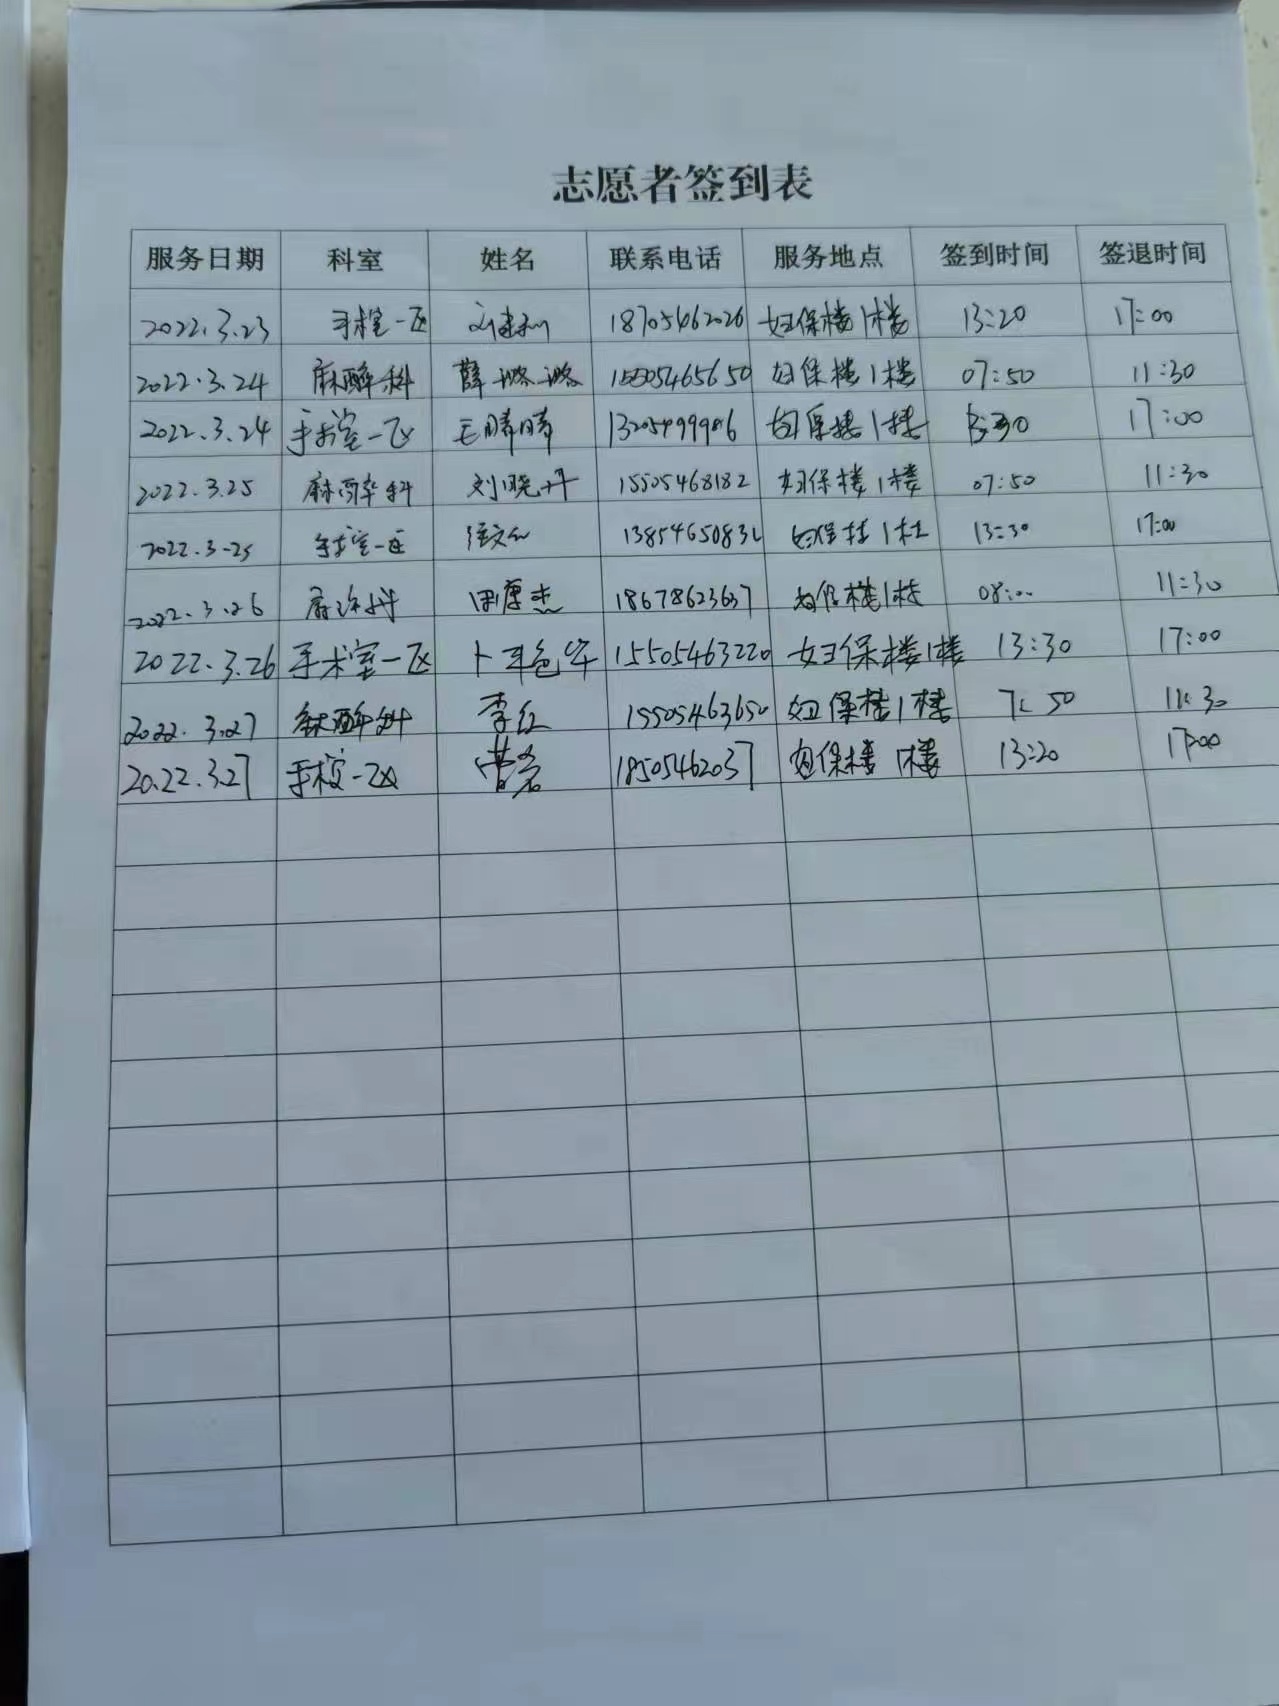 志愿者签到表
服务日期 科室 姓名 联系电话 服务地点 签到时间 签退时间
2022.3.23 手术室一区 18705462026 妇保楼1楼 13:20 17:00
2022.3.24 麻醉科 薛璐璐 15505465650 妇保楼1楼 07:50 11:30
2022.3.24 手术室一区 王晴晴 妇保楼1楼 17:00
2022.3.25 麻醉科 刘晓丹 15505468182 妇保楼1楼 07:50 11:30
2022.3.25 手术室一区 妇保楼1楼 13:30 17:00
2022.3.26 田康杰 18678623637 妇保楼1楼 08:00 11:30
2022.3.26 手术室一区 卜艳华 15505463220 妇保楼1楼 13:30 17:00
2022.3.27 麻醉科 李红 15505463650 妇保楼1楼 7:50 11:30
2022.3.27 手术室一区 18505462037 妇保楼1楼 13:20 17:00